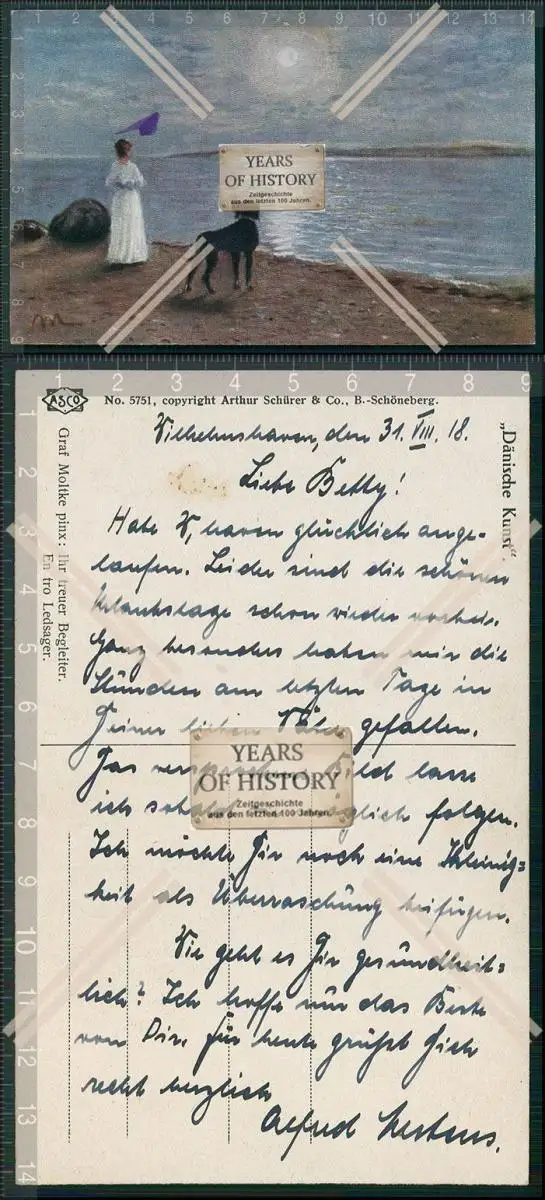 YEARS
OF HISTORY
Zeitgeschichte
aus den letzten 100 Jahren.
ASCO
No. 5751, copyright Arthur Schürer & Co., B.-Schöneberg.
„Dänische Kunst“.
Graf Moltke pinx: Ihr treuer Begleiter.
En tro Ledsager.
Wilhelmshaven, den 31. VIII. 18.
Liebe Betty!
Habe W, haven glücklich ange-
laufen. Leider sind die schönen
Urlaubstage schon wieder vorbei.
Ganz besonders haben mir die
Stunden am letzten Tage in
Deiner lieben Nähe gefallen.
Das Bild lasse
ich folgen.
Ich möchte Dir noch eine Kleinig=
keit als Überraschung beifügen.
Wie geht es Dir gesundheit=
lich? Ich hoffe nur das Beste
von Dir. Für heute grüßt Dich
recht herzlich
Alfred
YEARS
OF HISTORY
Zeitgeschichte
aus den letzten 100 Jahren.